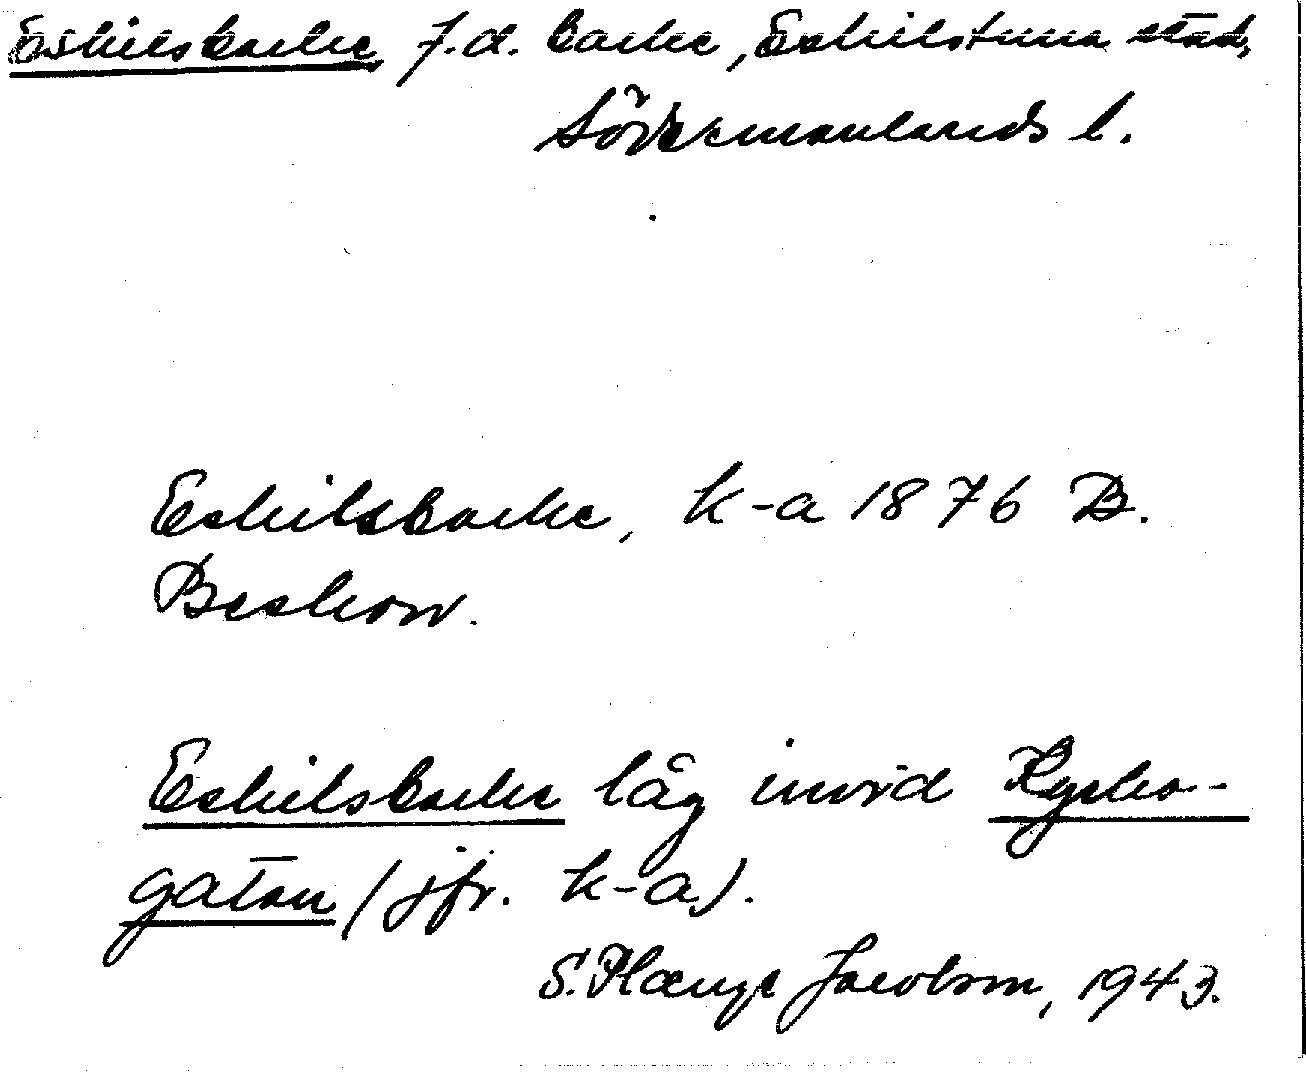 Eskilsbacke f.d. backe, Eskilstuna stad,
Södermanlands l.
Eskilsbacke, k-a 1876 B.
Beskow.
Eskilsbacke låg invid Kyrko-
gatan (jfr. k-a).
S. Plænge Jacobson, 1943.